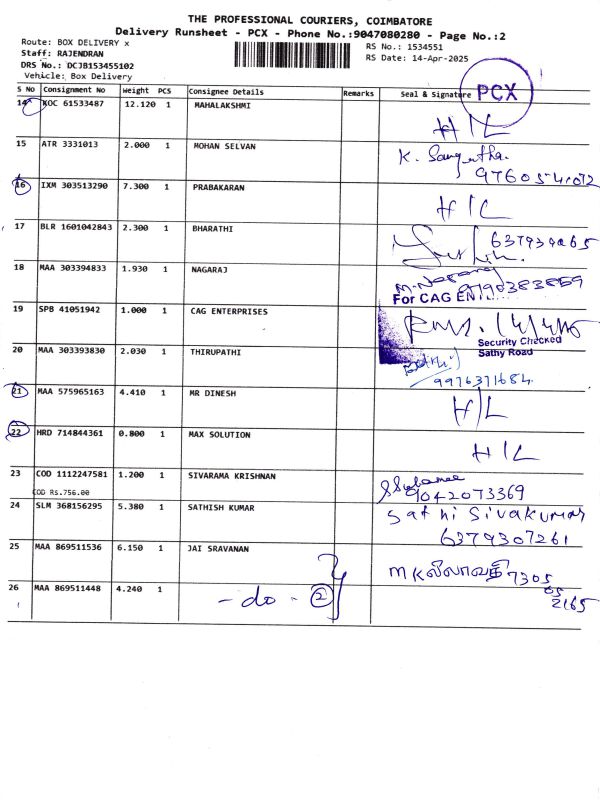 THE PROFESSIONAL COURIERS, COIMBATORE
Delivery Runsheet - PCX - Phone No.:9047080280 - Page No.:2
Route: BOX DELIVERY x
RS No.: 1534551
Staff: RAJENDRAN
RS Date: 14-Apr-2025
DRS No.: DCJB153455102
Vehicle: Box Delivery
PCX
S No Consignment No Weight PCS Consignee Details Remarks Seal & Signature
14 KOC 61533487 12.120 1 MAHALAKSHMI H/L
15 ATR 3331013 2.000 1 MOHAN SELVAN K. Sangetha.
9760541072
16 IXM 303513290 7.300 1 PRABAKARAN H/L
17 BLR 1601042843 2.300 1 BHARATHI
18 MAA 303394833 1.930 1 NAGARAJ M. Nagaraj
For CAG
19 SPB 41051942 1.000 1 CAG ENTERPRISES
Security Checked
Sathy Road
20 MAA 303393830 2.030 1 THIRUPATHI
9976371684
21 MAA 575965163 4.410 1 MR DINESH H/L
22 HRD 714844361 0.800 1 MAX SOLUTION H/L
23 COD 1112247581 1.200 1 SIVARAMA KRISHNAN
COD Rs.756.00
9042073369
24 SLM 368156295 5.380 1 SATHISH KUMAR Sathi Sivakumar
6379307261
25 MAA 869511536 6.150 1 JAI SRAVANAN MK லீலாவதி 7305
05
26 MAA 869511448 4.240 1 - do - 2
2165